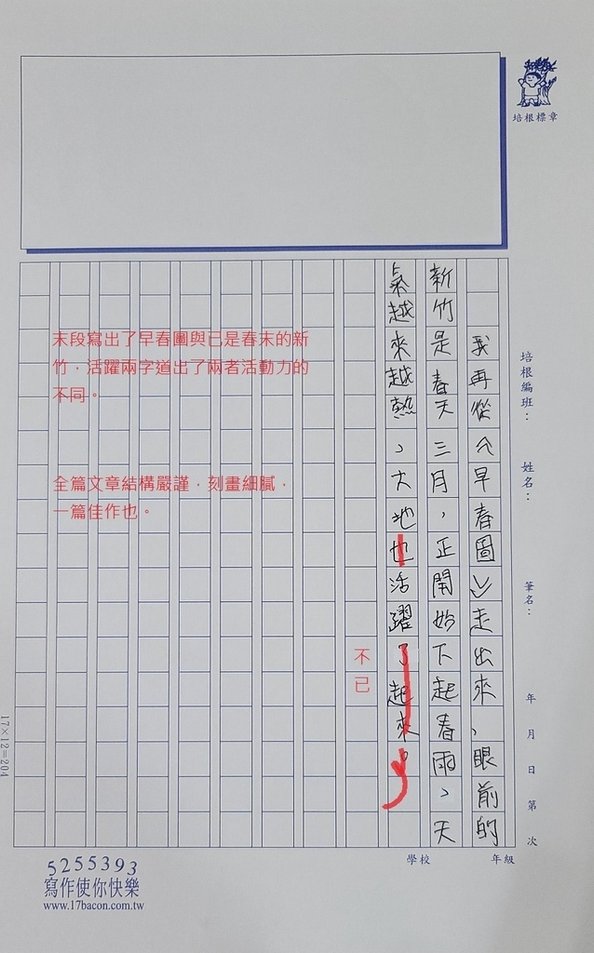 培根標章
培根編班：
姓名：
筆名：
年 月 日 第 次
我再從《早春圖》走出來，眼前的
新竹是春天三月，正開始下起春雨，天
氣越來越熱，大地也活躍了起來。
不已
末段寫出了早春圖與已是春末的新
竹，活躍兩字道出了兩者活動力的
不同。
全篇文章結構嚴謹，刻畫細膩，
一篇佳作也。
17×12=204
學校 年級
5255393
寫作使你快樂
www.17bacon.com.tw